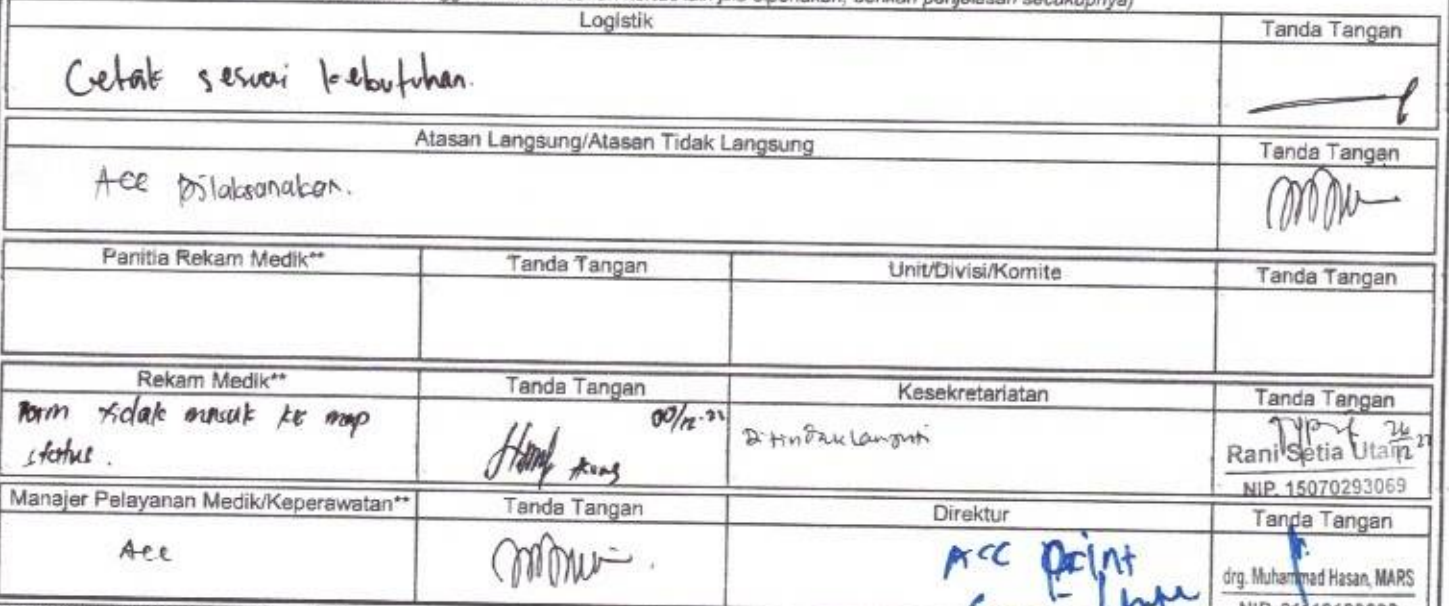 jika diperlukan, berikan penjelasan secukupnya)
Logistik Tanda Tangan
Cetak sesuai kebutuhan.
Atasan Langsung/Atasan Tidak Langsung Tanda Tangan
Acc Dilaksanakan.
Panitia Rekam Medik** Tanda Tangan Unit/Divisi/Komite Tanda Tangan
Rekam Medik** Tanda Tangan Kesekretariatan Tanda Tangan
Form tidak masuk ke map
status.
Ditindaklanjuti
Rani Setia Utami
NIP. 15070293069
Manajer Pelayanan Medik/Keperawatan** Tanda Tangan Direktur Tanda Tangan
Acc
ACC print
drg. Muhammad Hasan, MARS